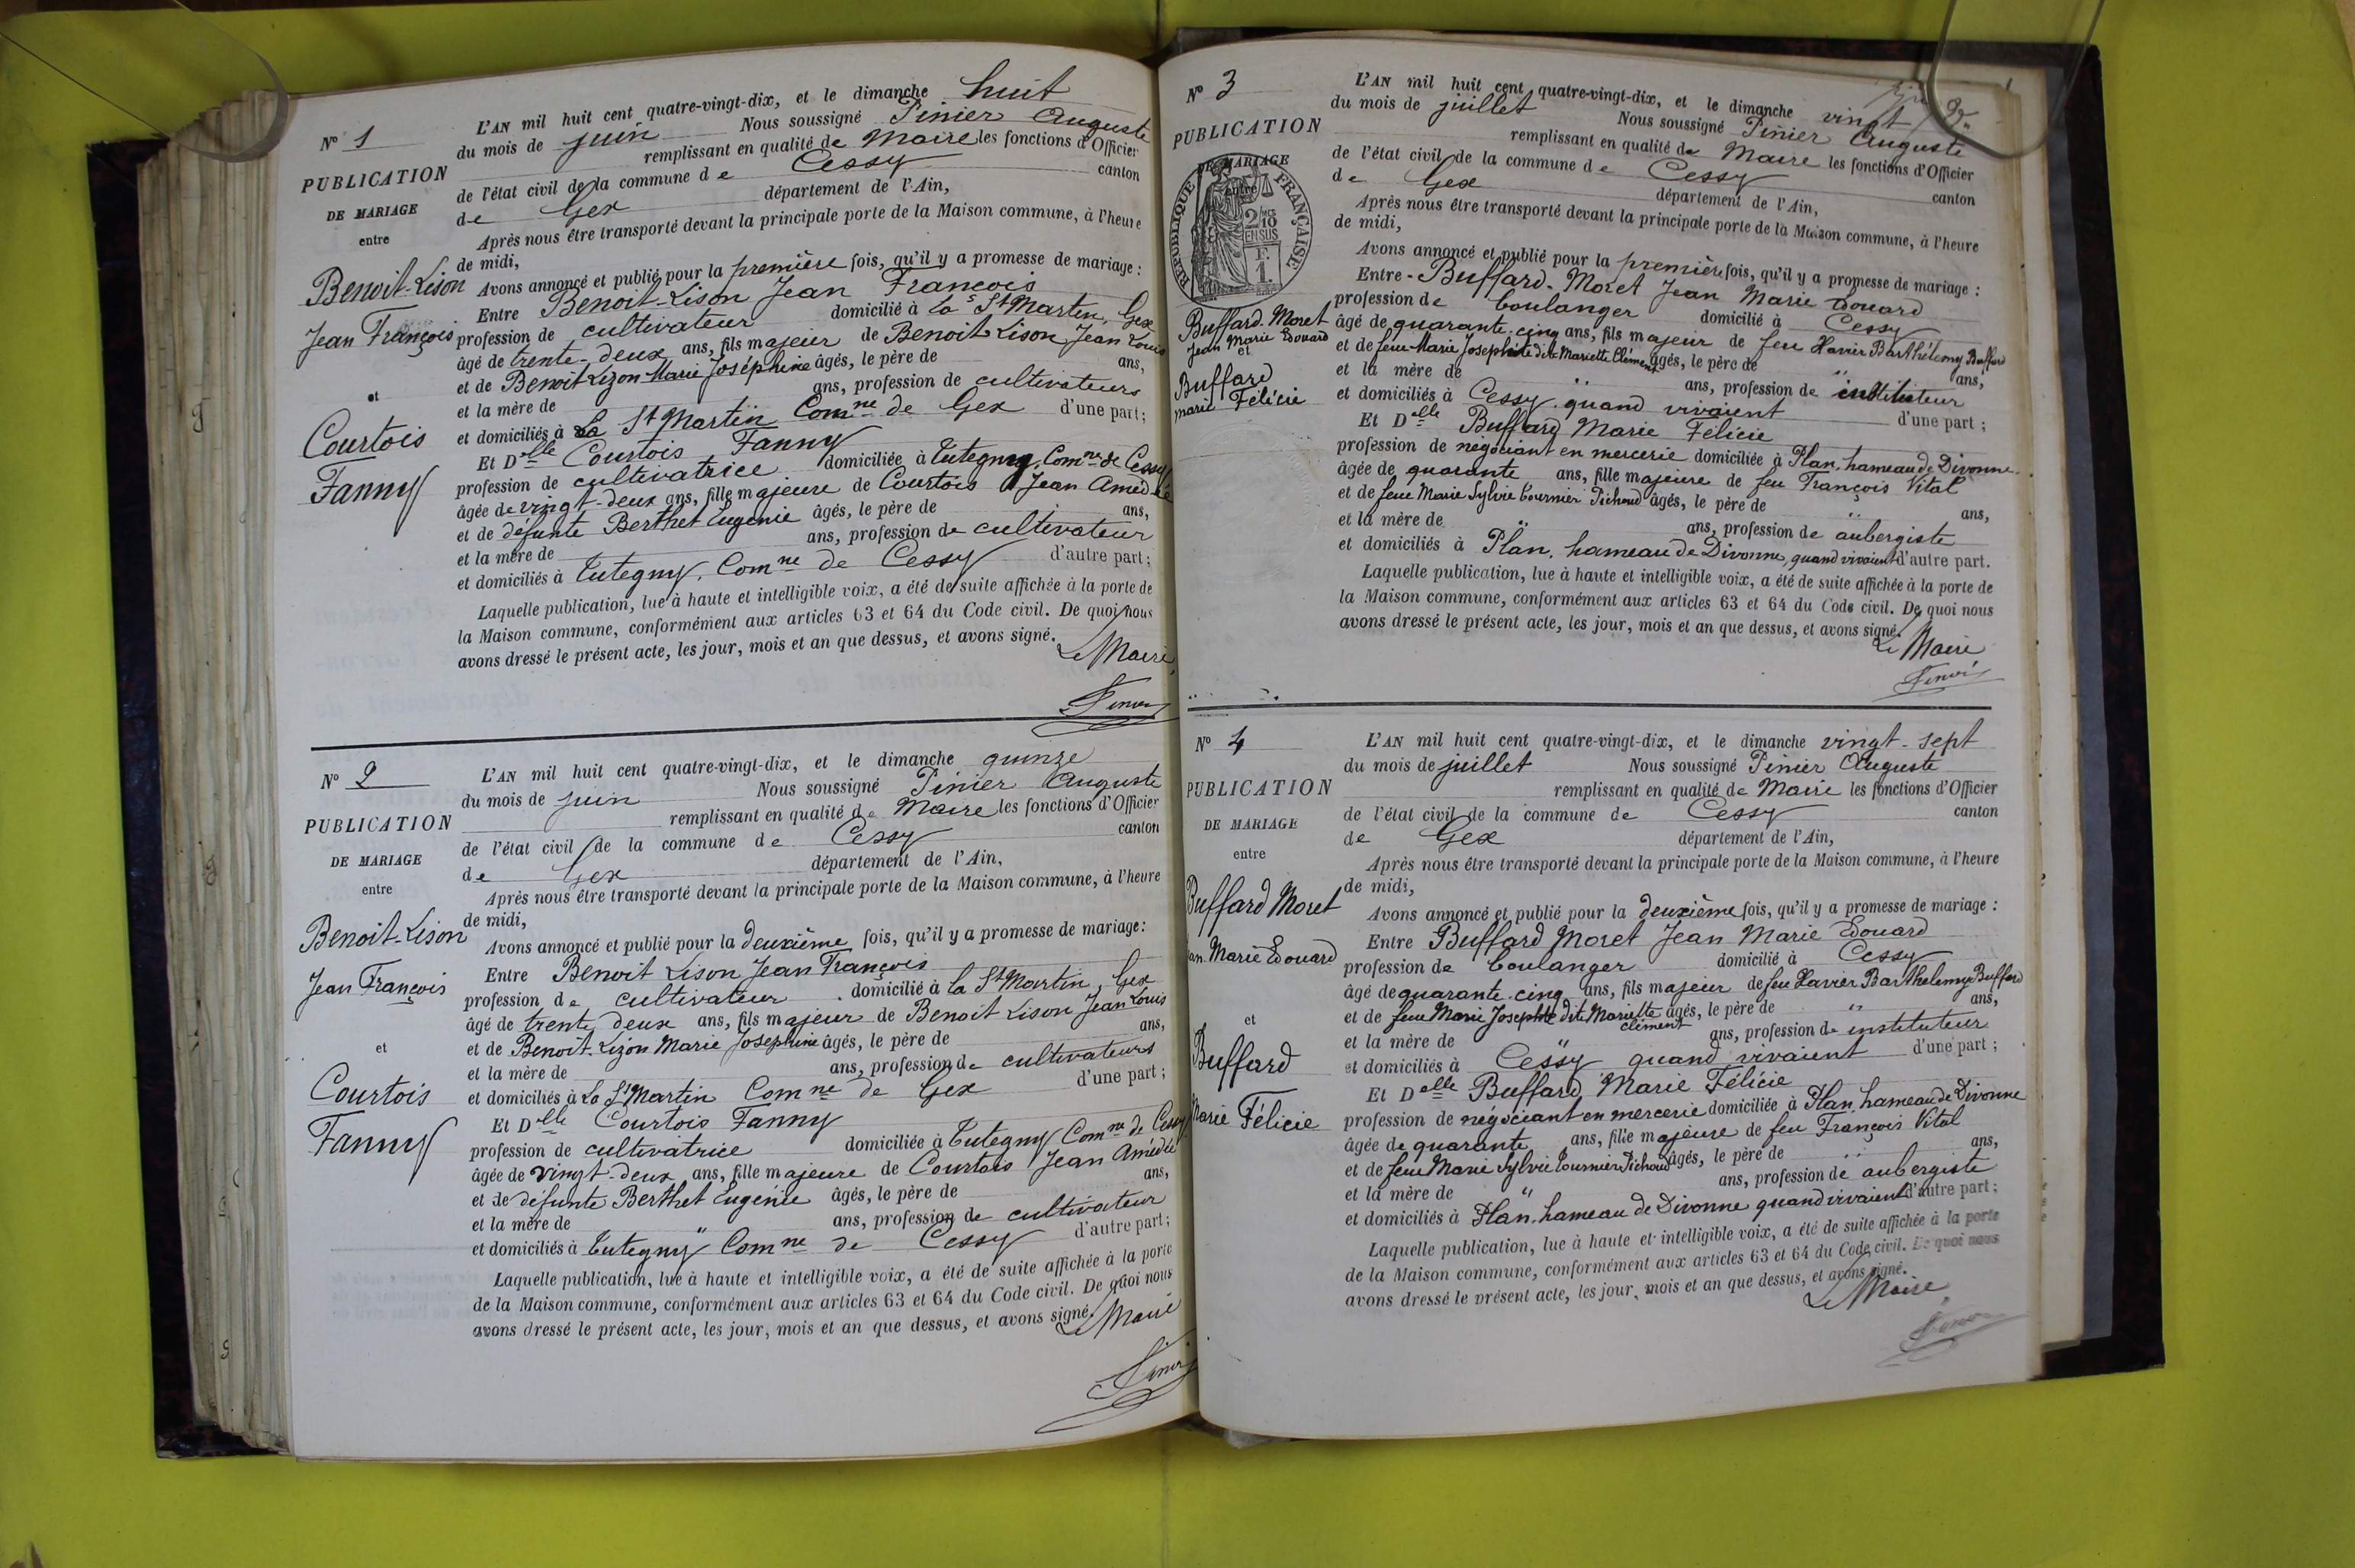 N° 1
PUBLICATION
DE MARIAGE
entre
Benoit-Lison
Jean François
et
Courtois
Fanny
L'AN mil huit cent quatre-vingt-dix, et le dimanche huit
du mois de juin Nous soussigné Pinier Auguste
remplissant en qualité de Maire les fonctions d'Officier
de l'état civil de la commune de Cessy canton
de Gex département de l'Ain,
Après nous être transporté devant la principale porte de la Maison commune, à l'heure
de midi,
Avons annoncé et publié pour la première fois, qu'il y a promesse de mariage :
Entre Benoit-Lison Jean François
profession de cultivateur domicilié à la St Martin, Gex
âgé de trente-deux ans, fils majeur de Benoit Lison Jean Louis
et de Benoit Lizon Marie Joséphine âgés, le père de ans,
et la mère de ans, profession de cultivateurs
et domiciliés à La St Martin Comne de Gex d'une part;
Et Delle Courtois Fanny
profession de cultivatrice domiciliée à Tutegny, Comne de Cessy
âgée de vingt-deux ans, fille majeure de Courtois Jean Amédée
et de défunte Berthet Eugénie âgés, le père de ans,
et la mère de ans, profession de cultivateur
et domiciliés à Tutegny, Comne de Cessy d'autre part;
Laquelle publication, lue à haute et intelligible voix, a été de suite affichée à la porte de
la Maison commune, conformément aux articles 63 et 64 du Code civil. De quoi nous
avons dressé le présent acte, les jour, mois et an que dessus, et avons signé.
Le Maire,
N° 2
PUBLICATION
DE MARIAGE
entre
Benoit-Lison
Jean François
et
Courtois
Fanny
L'AN mil huit cent quatre-vingt-dix, et le dimanche quinze
du mois de juin Nous soussigné Pinier Auguste
remplissant en qualité de Maire les fonctions d'Officier
de l'état civil de la commune de Cessy canton
de Gex département de l'Ain,
Après nous être transporté devant la principale porte de la Maison commune, à l'heure
de midi,
Avons annoncé et publié pour la deuxième fois, qu'il y a promesse de mariage :
Entre Benoit Lison Jean François
profession de cultivateur domicilié à la St Martin, Gex
âgé de trente deux ans, fils majeur de Benoit Lison Jean Louis
et de Benoit-Lizon Marie Josephine âgés, le père de ans,
et la mère de ans, profession de cultivateurs
et domiciliés à La St Martin Comne de Gex d'une part;
Et Delle Courtois Fanny
profession de cultivatrice domiciliée à Tutegny Comne de Cessy
âgée de vingt-deux ans, fille majeure de Courtois Jean Amédée
et de défunte Berthet Eugénie âgés, le père de ans,
et la mère de " ans, profession de cultivateur
et domiciliés à Tutegny Comne de Cessy d'autre part;
Laquelle publication, lue à haute et intelligible voix, a été de suite affichée à la porte
de la Maison commune, conformément aux articles 63 et 64 du Code civil. De quoi nous
avons dressé le présent acte, les jour, mois et an que dessus, et avons signé.
Le Maire
N° 3
PUBLICATION
DE MARIAGE
entre
RÉPUBLIQUE FRANÇAISE
2/10
EN SUS
F.
1
Buffard-Moret
Jean Marie Edouard
et
Buffard
Marie Félicie
L'AN mil huit cent quatre-vingt-dix, et le dimanche vingt
du mois de juillet Nous soussigné Pinier Auguste
remplissant en qualité de Maire les fonctions d'Officier
de l'état civil de la commune de Cessy canton
de Gex département de l'Ain,
Après nous être transporté devant la principale porte de la Maison commune, à l'heure
de midi,
Avons annoncé et publié pour la première fois, qu'il y a promesse de mariage :
Entre - Buffard-Moret Jean Marie Edouard
profession de boulanger domicilié à Cessy
âgé de quarante-cinq ans, fils majeur de feu Xavier Barthélemy Buffard
et de feue Marie Josephte dite Mariette Clément âgés, le père de " ans,
et la mère de " ans, profession de instituteur
et domiciliés à Cessy quand vivaient d'une part;
Et Delle Buffard Marie Félicie
profession de négociant en mercerie domiciliée à Plan, hameau de Divonne
âgée de quarante ans, fille majeure de feu François Vital
et de feue Marie Sylvie Tournier Pichoud âgés, le père de " ans,
et la mère de " ans, profession de aubergiste
et domiciliés à Plan, hameau de Divonne, quand vivaient d'autre part.
Laquelle publication, lue à haute et intelligible voix, a été de suite affichée à la porte de
la Maison commune, conformément aux articles 63 et 64 du Code civil. De quoi nous
avons dressé le présent acte, les jour, mois et an que dessus, et avons signé.
Le Maire
N° 4
PUBLICATION
DE MARIAGE
entre
Buffard Moret
Jean Marie Edouard
et
Buffard
Marie Félicie
L'AN mil huit cent quatre-vingt-dix, et le dimanche vingt-sept
du mois de juillet Nous soussigné Pinier Auguste
remplissant en qualité de Maire les fonctions d'Officier
de l'état civil de la commune de Cessy canton
de Gex département de l'Ain,
Après nous être transporté devant la principale porte de la Maison commune, à l'heure
de midi,
Avons annoncé et publié pour la deuxième fois, qu'il y a promesse de mariage :
Entre Buffard Moret Jean Marie Edouard
profession de boulanger domicilié à Cessy
âgé de quarante-cinq ans, fils majeur de feu Xavier Barthelemy Buffard
et de feue Marie Josephte dite Mariette Clément âgés, le père de " ans,
et la mère de " ans, profession de instituteur
et domiciliés à Cessy quand vivaient d'une part;
Et Delle Buffard Marie Félicie
profession de négociant en mercerie domiciliée à Plan, hameau de Divonne
âgée de quarante ans, fille majeure de feu François Vital
et de feue Marie Sylvie Tournier Pichoud âgés, le père de " ans,
et la mère de " ans, profession de aubergiste
et domiciliés à Plan, hameau de Divonne quand vivaient d'autre part;
Laquelle publication, lue à haute et intelligible voix, a été de suite affichée à la porte
de la Maison commune, conformément aux articles 63 et 64 du Code civil. De quoi nous
avons dressé le présent acte, les jour, mois et an que dessus, et avons signé.
Le Maire,